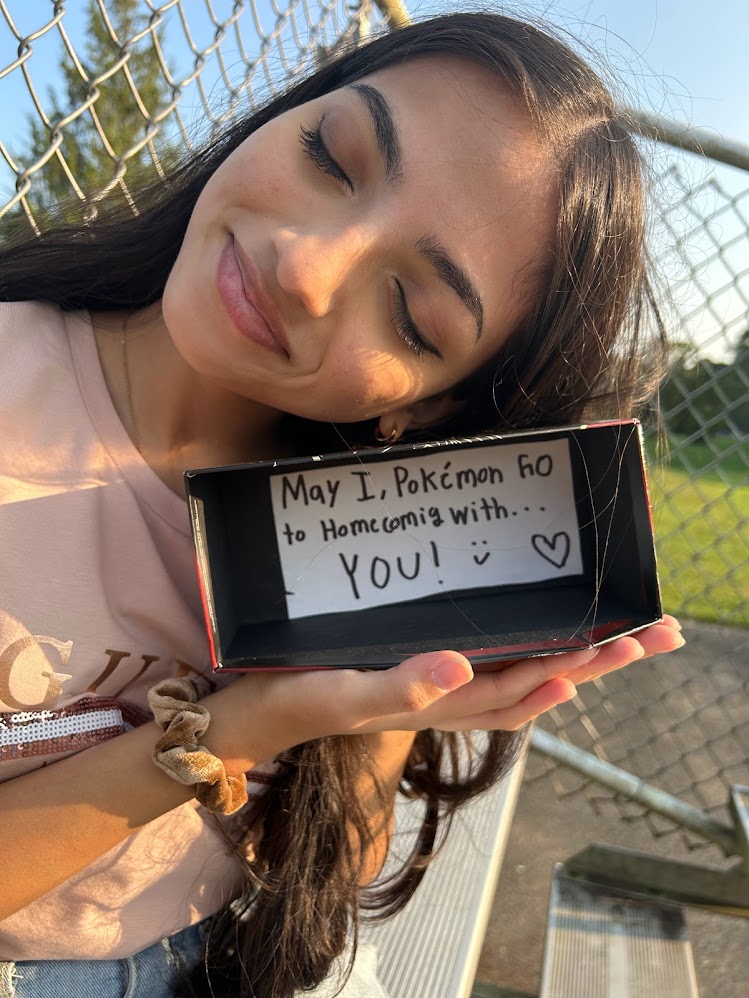 May I, Pokémon GO
to Homecomig with...
YOU! :) ♡